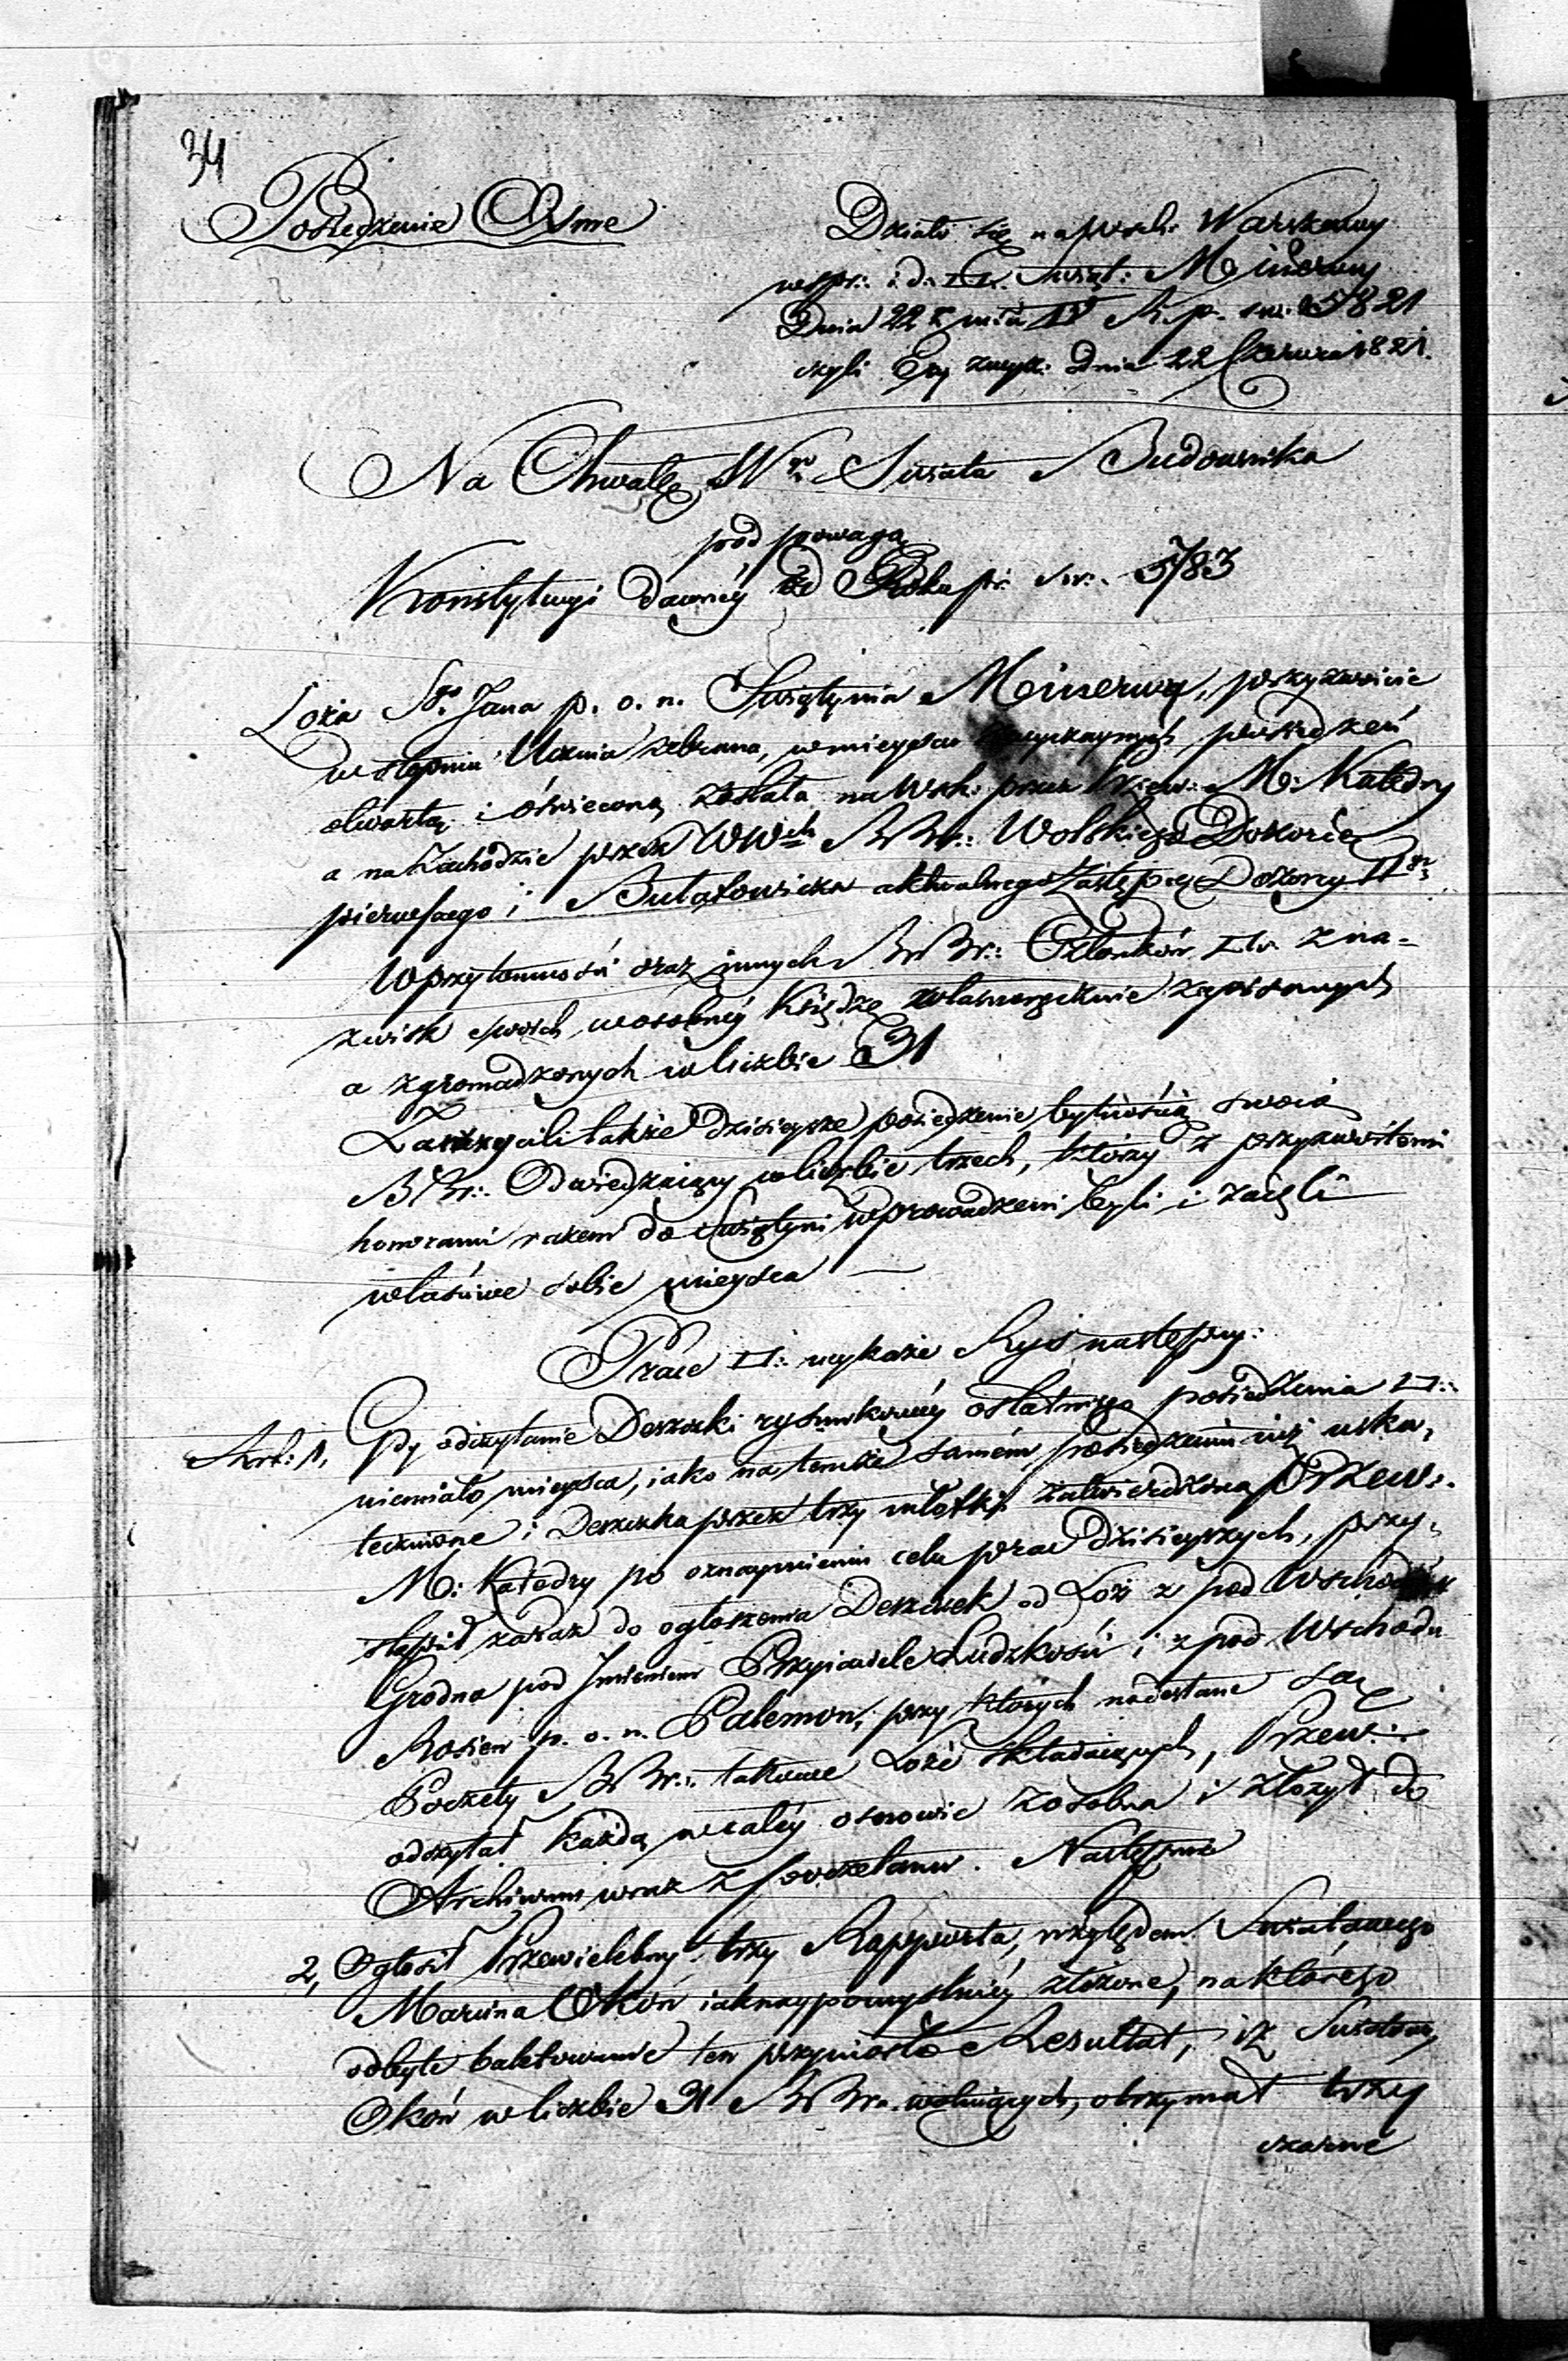 34
Posiedzenie Ósme
Działo się na Wsch: Warszawy
w spr: i d: □ Świąt: Minerwy
Dnia 22 mca IV R. p. św: 5821
czyli Ery zwycz: Dnia 22 Czerwca 1821.
Na Chwałę Wgo Świata Budownika
pod powagą
Konstytucyi dawnéy od Roku pr. św: 5783
Loża Sgo Jana p. o. n. Świątynia Minerwy, przyzwoicie
w stopniu Ucznia zebrana, w mieyscu zwyczaynych posiedzeń
otwartą i oświeconą została na Wsch: przez Przew: M: Katedry
a na Zachodzie przez WWch BBr: Wolskiego Dozorcę
pierwszego i Butałowicza aktualnego Zastępcę Dozorcy IIgo
W przytomności oraz innych BBr: Członków □ z na-
zwisk swoich w osobnéy Księdze własnoręcznie zapisanych
a zgromadzonych w liczbie 31
Zaszczycili także dzisieysze posiedzenie bytnością swoią
BBr: Odwiedzaiący w liczbie trzech, którzy z przyzwoitemi
honorami razem do Świątyni wprowadzeni byli i zaięli
właściwe sobie mieysca —
Prace □: wykaże Rys następny:
Art: 1, Gdy odczytanie Deszczki rysunkowéy ostatniego posiedzenia □:
niemiało mieysca, iako na temże samém posiedzeniu iuż usku,
tecznione i Deszczka przez trzy młotki zatwierdzona, Przew:
M: Katedry po oznaymieniu celu prac dzisieyszych, przy,
stąpił zaraz do ogłoszenia Deszczek od Loż z pod Wschodu
Grodna pod Imieniem Przyiaciele Ludzkości i z pod Wschodu
Rosien p. o. n. Palemon, przy których nadesłane są
Poczety BBr: takowe Loże składaiących, Przew:
odczytał każdą w całéy osnowie zosobna i złożył do
Archiwum wraz z poczetami. Następnie
2, Ogłosił Przewielebny trzy Rapporta, względem Światowego
Marcina Okoń iaknaypomyślniéy złożone, na którego
odbyte baletowanie ten przyniosło Resultat, iż Światowy
Okoń w liczbie 31 BBr: wotuiących, otrzymał trzy
czarne